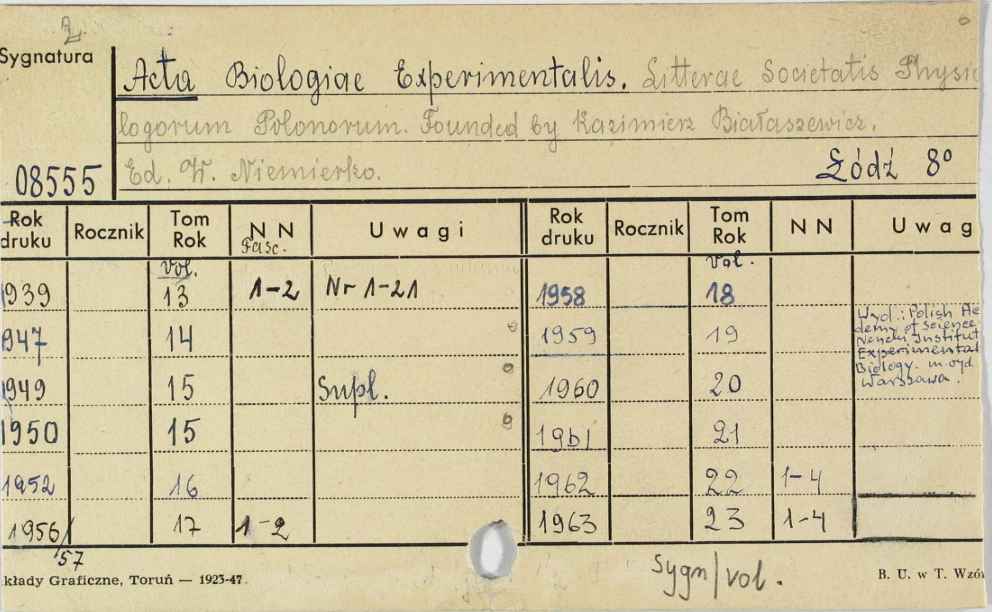 Sygnatura
Acta Biologiae Experimentalis. Litterae Societatis Physio
logorum Polonorum. Founded by Kazimierz Białaszewicz.
Ed. W. Niemierko.
08555 Łódź 8°
Rok druku Rocznik Tom Rok NN Fasc. Uwagi Rok druku Rocznik Tom Rok NN Uwag
vol. vol.
1939 13 1-2 Nr 1-21 1958 18
1947 14 1959 19
Wyd.: Polish Aca
demy of Science
Nencki Institut
Experimental
Biology. m. wyd.
Warszawa.
1949 15 Supl. 1960 20
1950 15 1961 21
1952 16 1962 22 1-4
1956/ 17 1-2 1963 23 1-4
'57
kłady Graficzne, Toruń — 1923-47. Sygn/vol. B. U. w T. Wzó